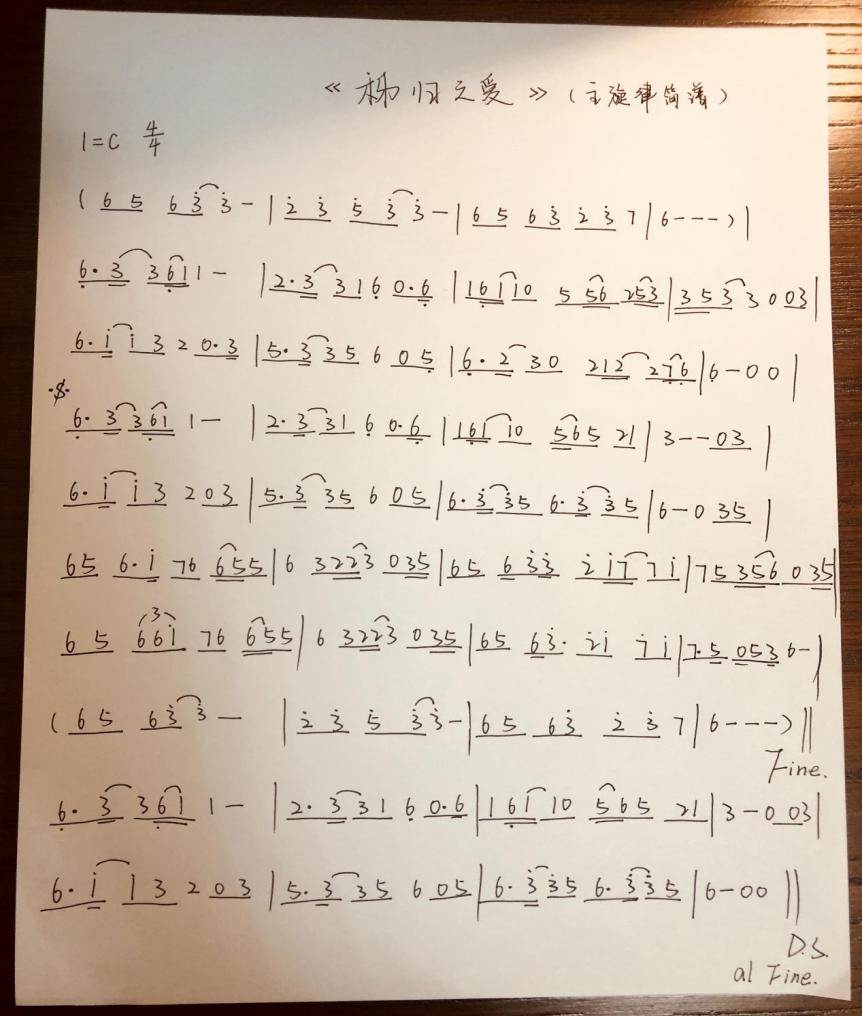 《秭归之爱》(主旋律简谱)
1=C 4/4
(6 5 6 3̇ 3̇ - | 2̇ 3̇ 5̇ 3̇ 3̇ - | 6 5 6 3̇ 2̇ 3̇ 7 | 6 - - - ) |
6̣· 3 3 6̣ 1 1 - | 2· 3 3 1 6̣ 0· 6̣ | 1 6̣ 1 1 0 5 5 6 2 5 3 | 3 5 3 3 0 0 3 |
6· i̇ i̇ 3 2 0· 3 | 5· 3 3 5 6 0 5̣ | 6̣· 2 3 0 2 1 2 2 7̣ 6̣ | 6̣ - 0 0 |
𝄋
6̣· 3 3 6̣ 1 1 - | 2· 3 3 1 6̣ 0· 6̣ | 1 6̣ 1 1 0 5 6 5 2 1 | 3 - - 0 3 |
6· i̇ i̇ 3 2 0 3 | 5· 3 3 5 6 0 5 | 6· 3̇ 3̇ 5 6· 3̇ 3̇ 5 | 6 - 0 3 5 |
6 5 6· i̇ 7 6 6 5 5 | 6 3 2 2 3 0 3 5 | 6 5 6 3̇ 3̇ 2̇ i̇ 7 7 i̇ | 7 5 3 5 6 0 3 5 |
6 5 3 6 6 i̇ 7 6 6 5 5 | 6 3 2 2 3 0 3 5 | 6 5 6 3̇· 2̇ i̇ 7 i̇ | 7· 5 0 5 3 6 - |
(6 5 6 3̇ 3̇ - | 2̇ 3̇ 5 3̇ 3̇ - | 6 5 6 3̇ 2̇ 3̇ 7 | 6 - - - ) ‖
Fine.
6̣· 3 3 6̣ 1 1 - | 2· 3 3 1 6̣ 0· 6 | 1 6̣ 1 1 0 5 6 5 2 1 | 3 - 0 0 3 |
6· i̇ 1 3 2 0 3 | 5· 3 3 5 6 0 5 | 6· 3̇ 3̇ 5 6· 3̇ 3̇ 5 | 6 - 0 0 ‖
D.S.
al Fine.